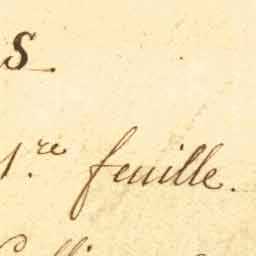 S.
1.re feuille.